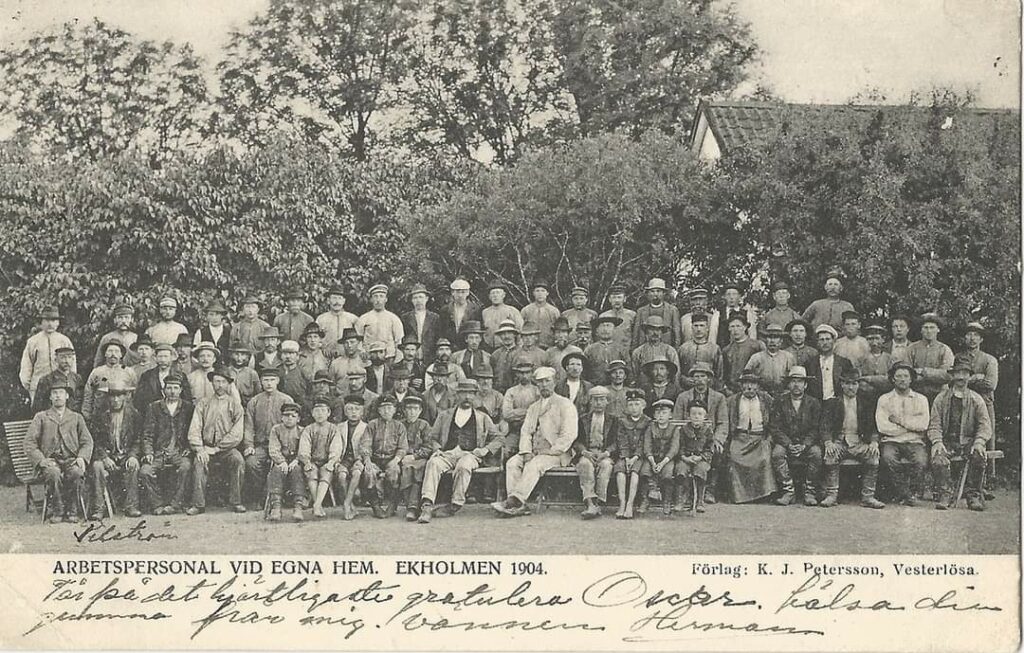 ARBETSPERSONAL VID EGNA HEM. EKHOLMEN 1904.
Förlag: K. J. Petersson, Vesterlösa.
Får på det hjärtligaste gratulera Oscar. hälsa din
gumma från mig. vännen Herman